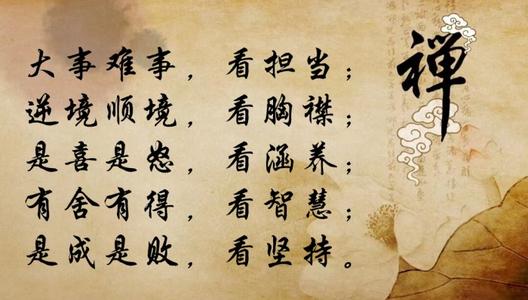 大事难事，看担当；
逆境顺境，看胸襟；
是喜是怒，看涵养；
有舍有得，看智慧；
是成是败，看坚持。
禅